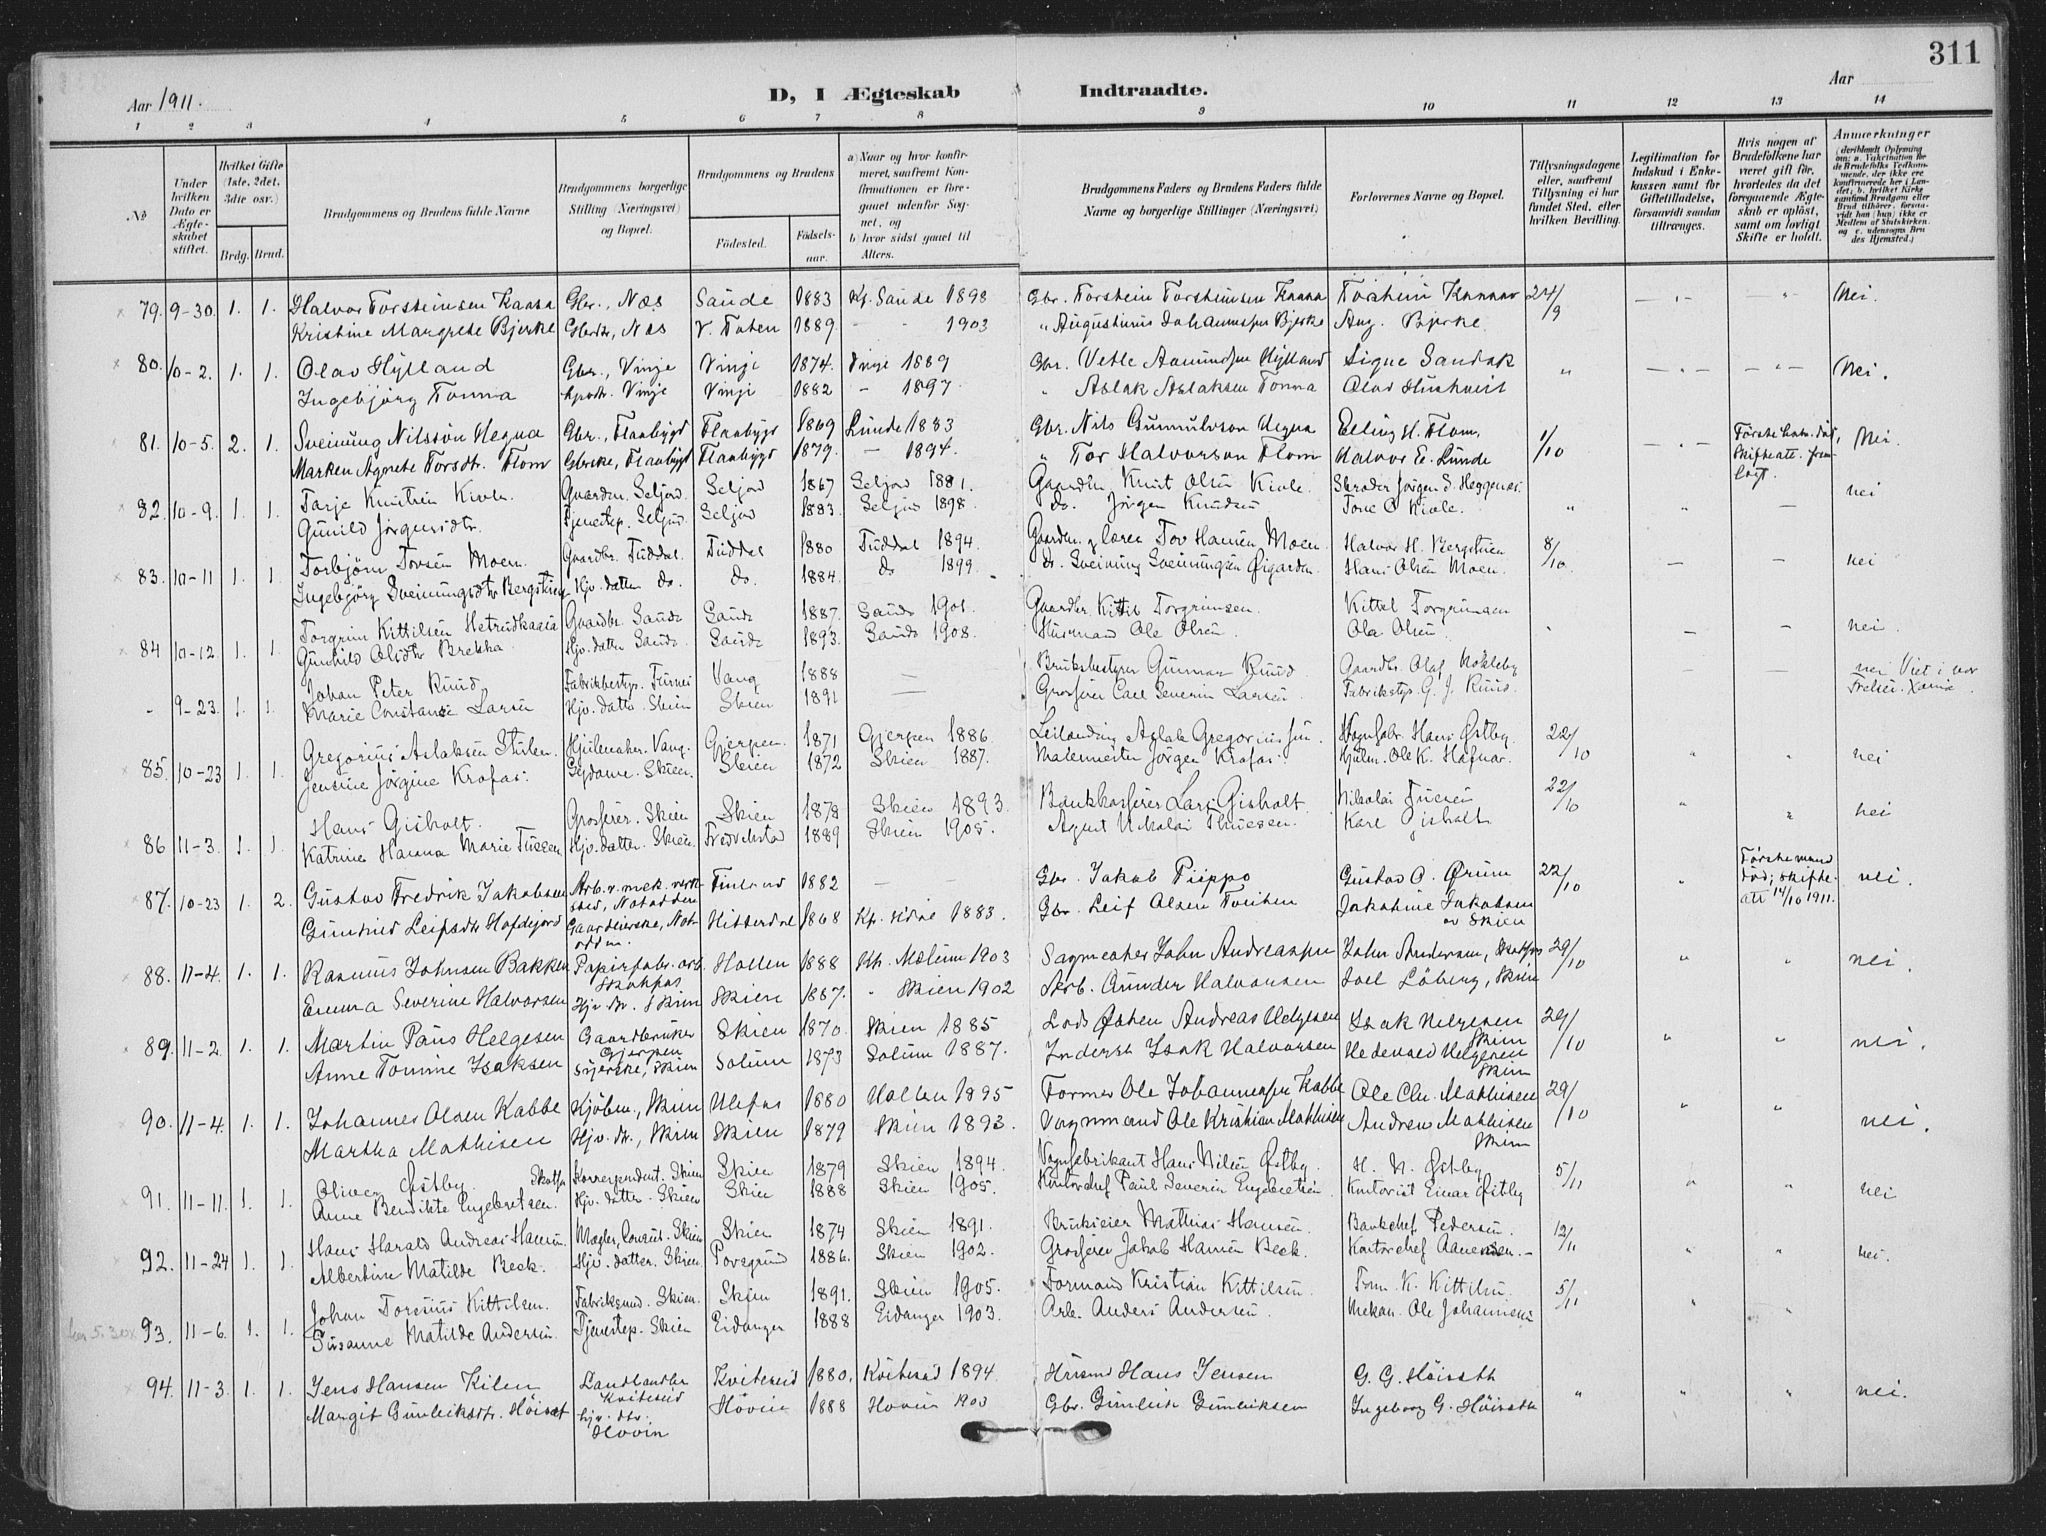 311
Aar 1911.
D, I Ægteskab Indtraadte.
Aar
1 2 3 4 5 6 7 8 9 10 11 12 13 14
No
Under hvilken Dato er Ægteskabet stiftet.
Hvilket Gifte (1ste, 2det, 3die osv.)
Brdg. Brud.
Brudgommens og Brudens fulde Navne
Brudgommens borgerlige Stilling (Næringsvei) og Bopæl.
Brudgommens og Brudens
Fødested. Fødselsaar.
a) Naar og hvor konfirmeret, saafremt Konfirmationen er foregaaet udenfor Sognet, og
b) hvor sidst gaaet til Alters.
Brudgommens Faders og Brudens Faders fulde Navne og borgerlige Stillinger (Næringsvei)
Forlovernes Navne og Bopæl.
Tillysningsdagene eller, saafremt Tillysning ei har fundet Sted, efter hvilken Bevilling.
Legitimation for Indskud i Enkekassen samt for Giftetilladelse, forsaavidt saadan tiltrænges.
Hvis nogen af Brudefolkene har været gift før, hvorledes da det foregaaende Ægteskab er opløst, samt om lovligt Skifte er holdt.
Anmærkninger
79. 9-30. 1. 1. Halvor Torsteinsen Kaasa Gbr., Næs Saude 1883 Kp. Saude 1898 Gbr. Torstein Torsteinsen Kaasa Torstein Kaasa 24/9 Nei.
Kristine Margrete Bjerke Gbrdtr, Næs V. Toten 1889 - - 1903 " Augustinus Johannesen Bjerke Aug. Bjerke
80. 10-2. 1. 1. Olav Hylland Gbr., Vinje Vinje 1874. Vinje 1889 Gbr. Vetle Aamundsen Hylland Signe Sandok " Nei.
Ingebjørg Tonna Vinje Vinje 1882 - 1897 " Aslak Aslaksen Tonna Olav
81. 10-5. 2. 1. Sveinung Nilsson Hegna Gbr., Flaabygd Flaabygd 1869 Lunde 1883 Gbr. Nils Gunnulvson Hegna Elling H. Flom, 1/10 Første hustr. død, Nei.
Marken Agnete Torsdtr. Flom Flaabygd Flaabygd 1879. - 1894. " Tor Halvorson Flom Halvor E. Lunde Skifteatt. fremlagt.
82. 10-9. 1. 1. Tarje Knutsen Kivle Gaardm. Seljord Seljord 1867 Seljord 1881. Gaardm. Knut Olsen Kivle. Skræder Jørgen S. Heggenes. nei
Gunild Jørgensdtr. Tjenestep. Seljord Seljord 1883. Seljord 1898. do. Jørgen Knudsen Tone O. Kivle.
83. 10-11 1. 1. Torbjørn Torsen Moen Gaardbr. Tuddal. Tuddal 1880 Tuddal 1894. Tov Hansen Moen. Halvor H. Bergstuen 8/10 nei
Ingebjørg Sveinungsdtr Bergstuen Hjv. datter do. do. 1884. do 1899. do. Sveinung Sveinungsen Øigarden. Hans Olsen Moen.
84 10-12. 1. 1. Torgrim Kittilsen Hetradkaasa Gaardbr. Saude Saude 1887. Saude 1901. Gaardbr. Kittil Torgrimsen. Kittel Torgrimsen nei.
Gunhild Olsdtr Brekka. Hjv. datter Saude. Saude 1893. Saude 1908. Husmand Ole Olsen. Ola Olsen
- 9-23. 1. 1. Johan Peter Ruud Fabrikbestyr. Vang 1888 - Bruksbestyrer Gunnar Ruud Gaardbr. Olaf nei Viet i vor Frelser.
Marie Constance Larsen Hjv. datter Skien Skien 1891 - Grosserer Carl Severin Larsen Fabrikbestyr. G. J. Ruud.
85. 10-23 1. 1. Gregorius Aslaksen Stulen Hjulmaker. Vang. Gjerpen. 1871 Gjerpen 1886. Leilænding Aslak Gregoriussen. Vognfabr. Hans Østby. 22/10 nei
Jensine Jørgine Krafas. Skien. Skien 1872 Skien 1887. Malermester Jørgen Krafas. Ole K. Hafnar.
86 11-3. 1. 1. Hans Gisholt. Grosserer. Skien Skien 1878 Skien 1893. Bankkasserer Lars Gisholt Nikolai Tuesen 22/10 nei
Katrine Hanna Marie Tuesen Hjv. datter. Skien. Fredrikstad 1889 Skien 1905. Agent Nikolai Thuesen. Karl Gisholt
87. 10-23 1. 2. Gustav Fredrik Jakobsen Arb. v. mek. verksted, Notodden Finland 1882 - - Gbr. Jakob Piippo Gustav O. Ørum 22/10 Første mand død; skifteatt 14/10 1911. nei.
Gunhild Leifsdtr Hofdejord Gaardeierske, Notodden. Hitterdal 1868 Kp. 1883. Gbr. Leif Olsen Jakobine Jakobsen av Skien
88. 11-4. 1. 1. Rasmus Johnsen Bakken Papirfabr. arb. Skotfos Hollen 1888 Kp. Melum 1903 Sagmester John Andreassen John Andersen, Skotfos 29/10 nei.
Emma Severine Halvorsen Hjv. dr. Skien Skien 1887. " Skien 1902 Arb. Gunder Halvorsen Joel Löberg, Skien
89. 11-2. 1. 1. Martin Paus Helgesen Gaardbruker Gjerpen Skien 1870. Skien 1885 Lods Johan Andreas Helgesen Isak Helgesen Skien 29/10 nei.
Anne Tomine Isaksen Syerske, Skien Solum 1873 Solum 1887. Inderst Isak Halvorsen Hedevard Helgesen Skien
90. 11-4. 1. 1. Johannes Olsen Kabbe Kjøbm., Skien Ulefos 1880 Hollen 1895 Former Ole Johannesen Kabbe Ole Chr. Mathisen 29/10 nei.
Martha Mathisen Hjv. dr., Skien Skien 1879 Skien 1893. Vognmand Ole Kristian Mathisen Andreas Mathisen Skien
91. 11-11. 1. 1. Oliver Østby. Korrespondent. Skien Skien 1879 Skien 1894. Vognfabrikant Hans Nilsen Østby. H. N. Østby 5/11 nei
Anne Benedikte Engebretsen. Hjv. datter. Skien Skien 1888 Skien 1905. Kontorchef Paul Severin Engebretsen. Kontorist Einar Østby
92. 11-24 1. 1. Hans Harald Andreas Hansen. Mægler, Consul. Skien Skien 1874 Skien 1891. Brukseier Mathias Hansen. Bankchef Pedersen. 12/11 nei.
Albertine Matilde Beck. Hjv. datter. Skien. Porsgrund 1886. Skien 1902. Grosserer Jakob Hansen Beck. Kontorchef Aanensen. -
93. 11-6. 1. 1. Johan Toresius Kittilsen. Skien. Skien 1891. Skien 1905. Formand Kristian Kittilsen. Form. K. Kittilsen 5/11 nei.
Susanne Matilde Andersen. Tjenestep. Skien Eidanger 1888 Eidanger 1903. Arb. Anders Andersen. Mekan. Ole Johannesen
94. 11-3. 1. 1. Jens Hansen Kilen Landhandler Kviteseid Kviteseid 1880. Kviteseid 1894. Husmd Hans Jensen G. G. Höisæth " nei.
Margit Gunleiksdtr. Höisæt hjv. dtr. Hovin Hovin 1888 Hovin 1903 Gbr. Gunleik Gunleiksen Ingeborg G. Höisæth